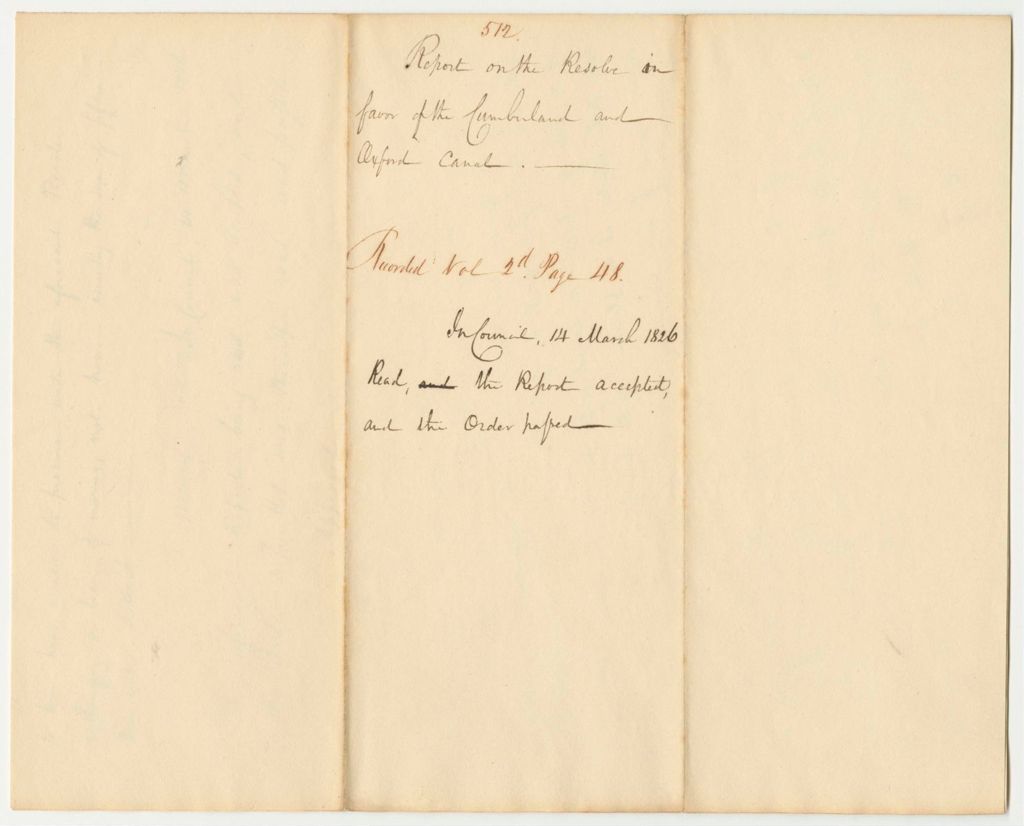 512.
Report on the Resolve in
favor of the Cumberland and
Oxford Canal.
Recorded Vol 2d. Page 48.
In Council, 14 March 1826
Read, and the Report accepted,
and the Order passed